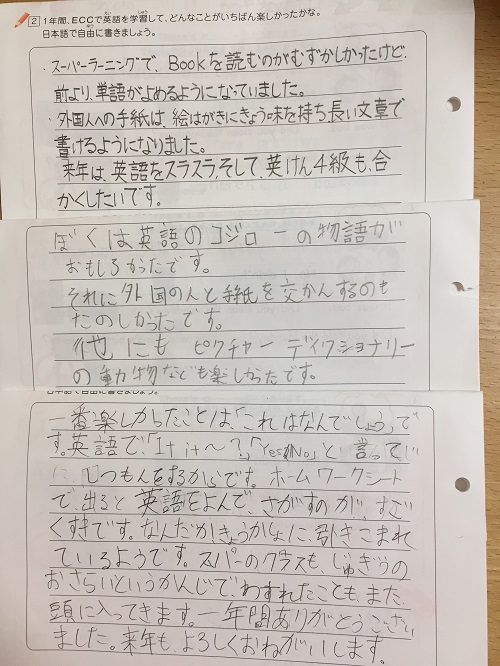 2 1年間、ECCで英語を学習して、どんなことがいちばん楽しかったかな。
日本語で自由に書きましょう。
・スーパーラーニングで、Bookを読むのがむずかしかったけど、
前より、単語がよめるようになっていました。
・外国人への手紙は、絵はがきにきょう味を持ち長い文章で
書けるようになりました。
来年は、英語をスラスラ、そして、英けん4級も、合
かくしたいです。
ぼくは英語のコジローの物語が
おもしろかったです。
それに外国の人と手紙を交かんするのも
たのしかったです。
他にも ピクチャー ディクショナリー
の動物なども楽しかったです。
一番楽しかったことは、「これはなんでしょう」で
す。英語で、「It it〜?」「Yes/No」と言って
しつもんをするからです。ホームワークシート
で、出ると英語をよんで、さがすのが、すご
く好きです。なんだかきょうかしょに、引きこまれ
ているようです。スパーのクラスも、じゅぎょうの
おさらいというかんじで、わすれたことも、また
頭に入ってきます。一年間ありがとうござい
ました。来年も、よろしくおねがいします。